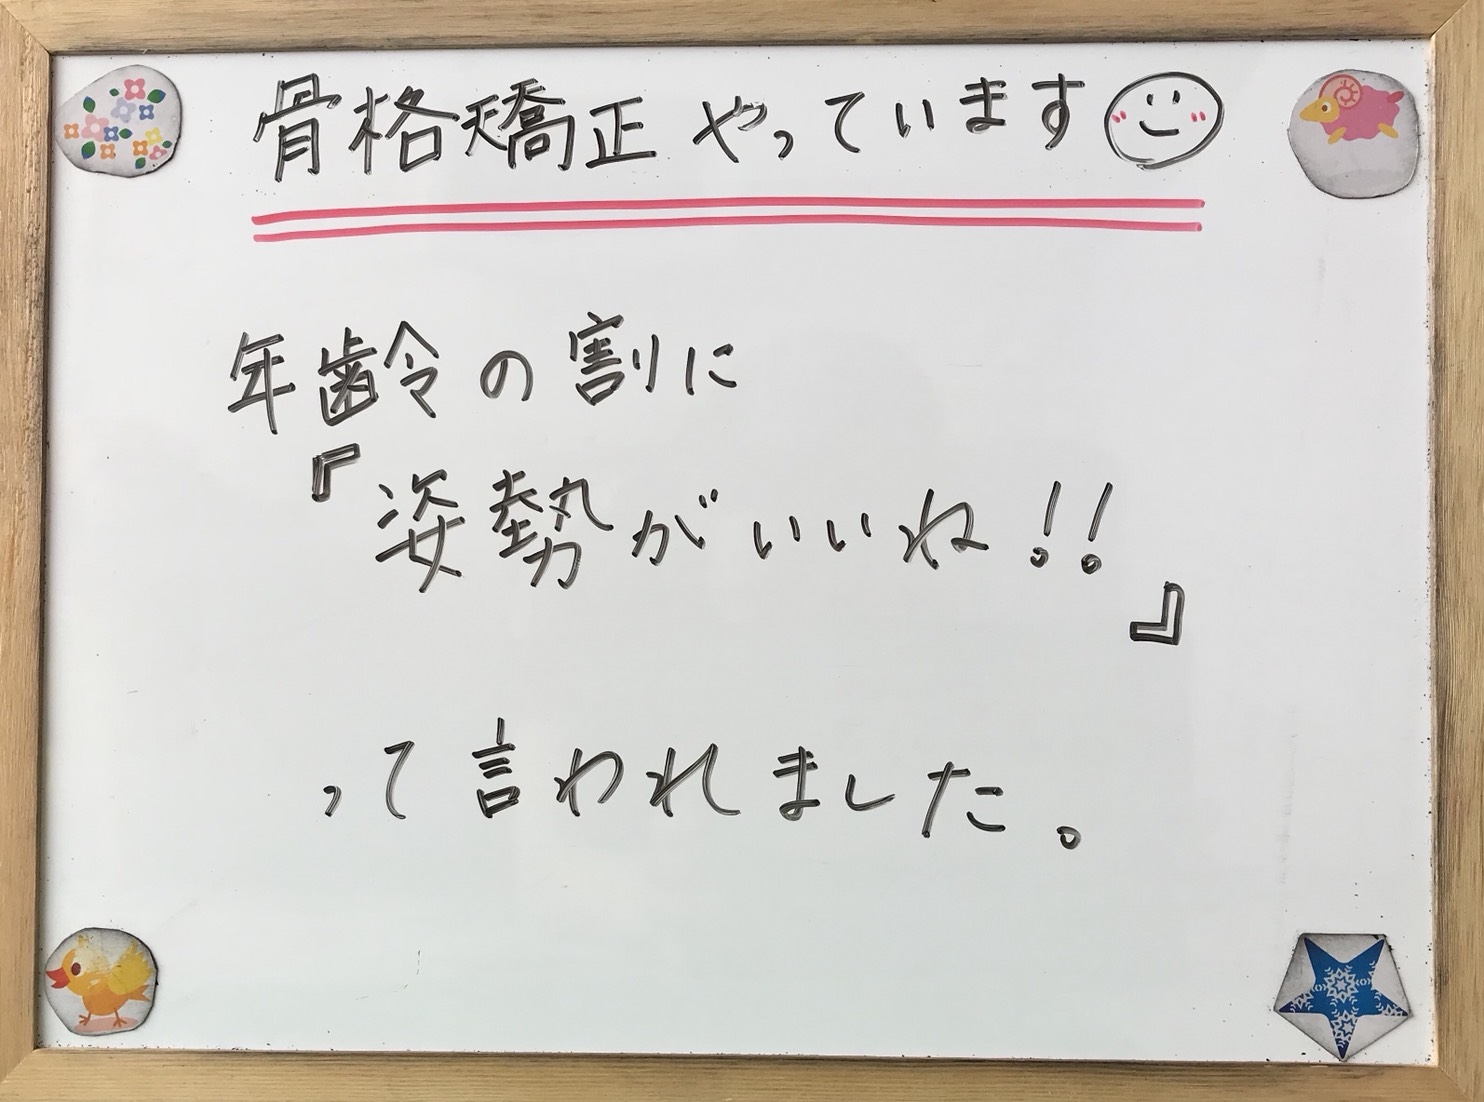 骨格矯正やっています
年齢の割に
『姿勢がいいね!!』
って言われました。